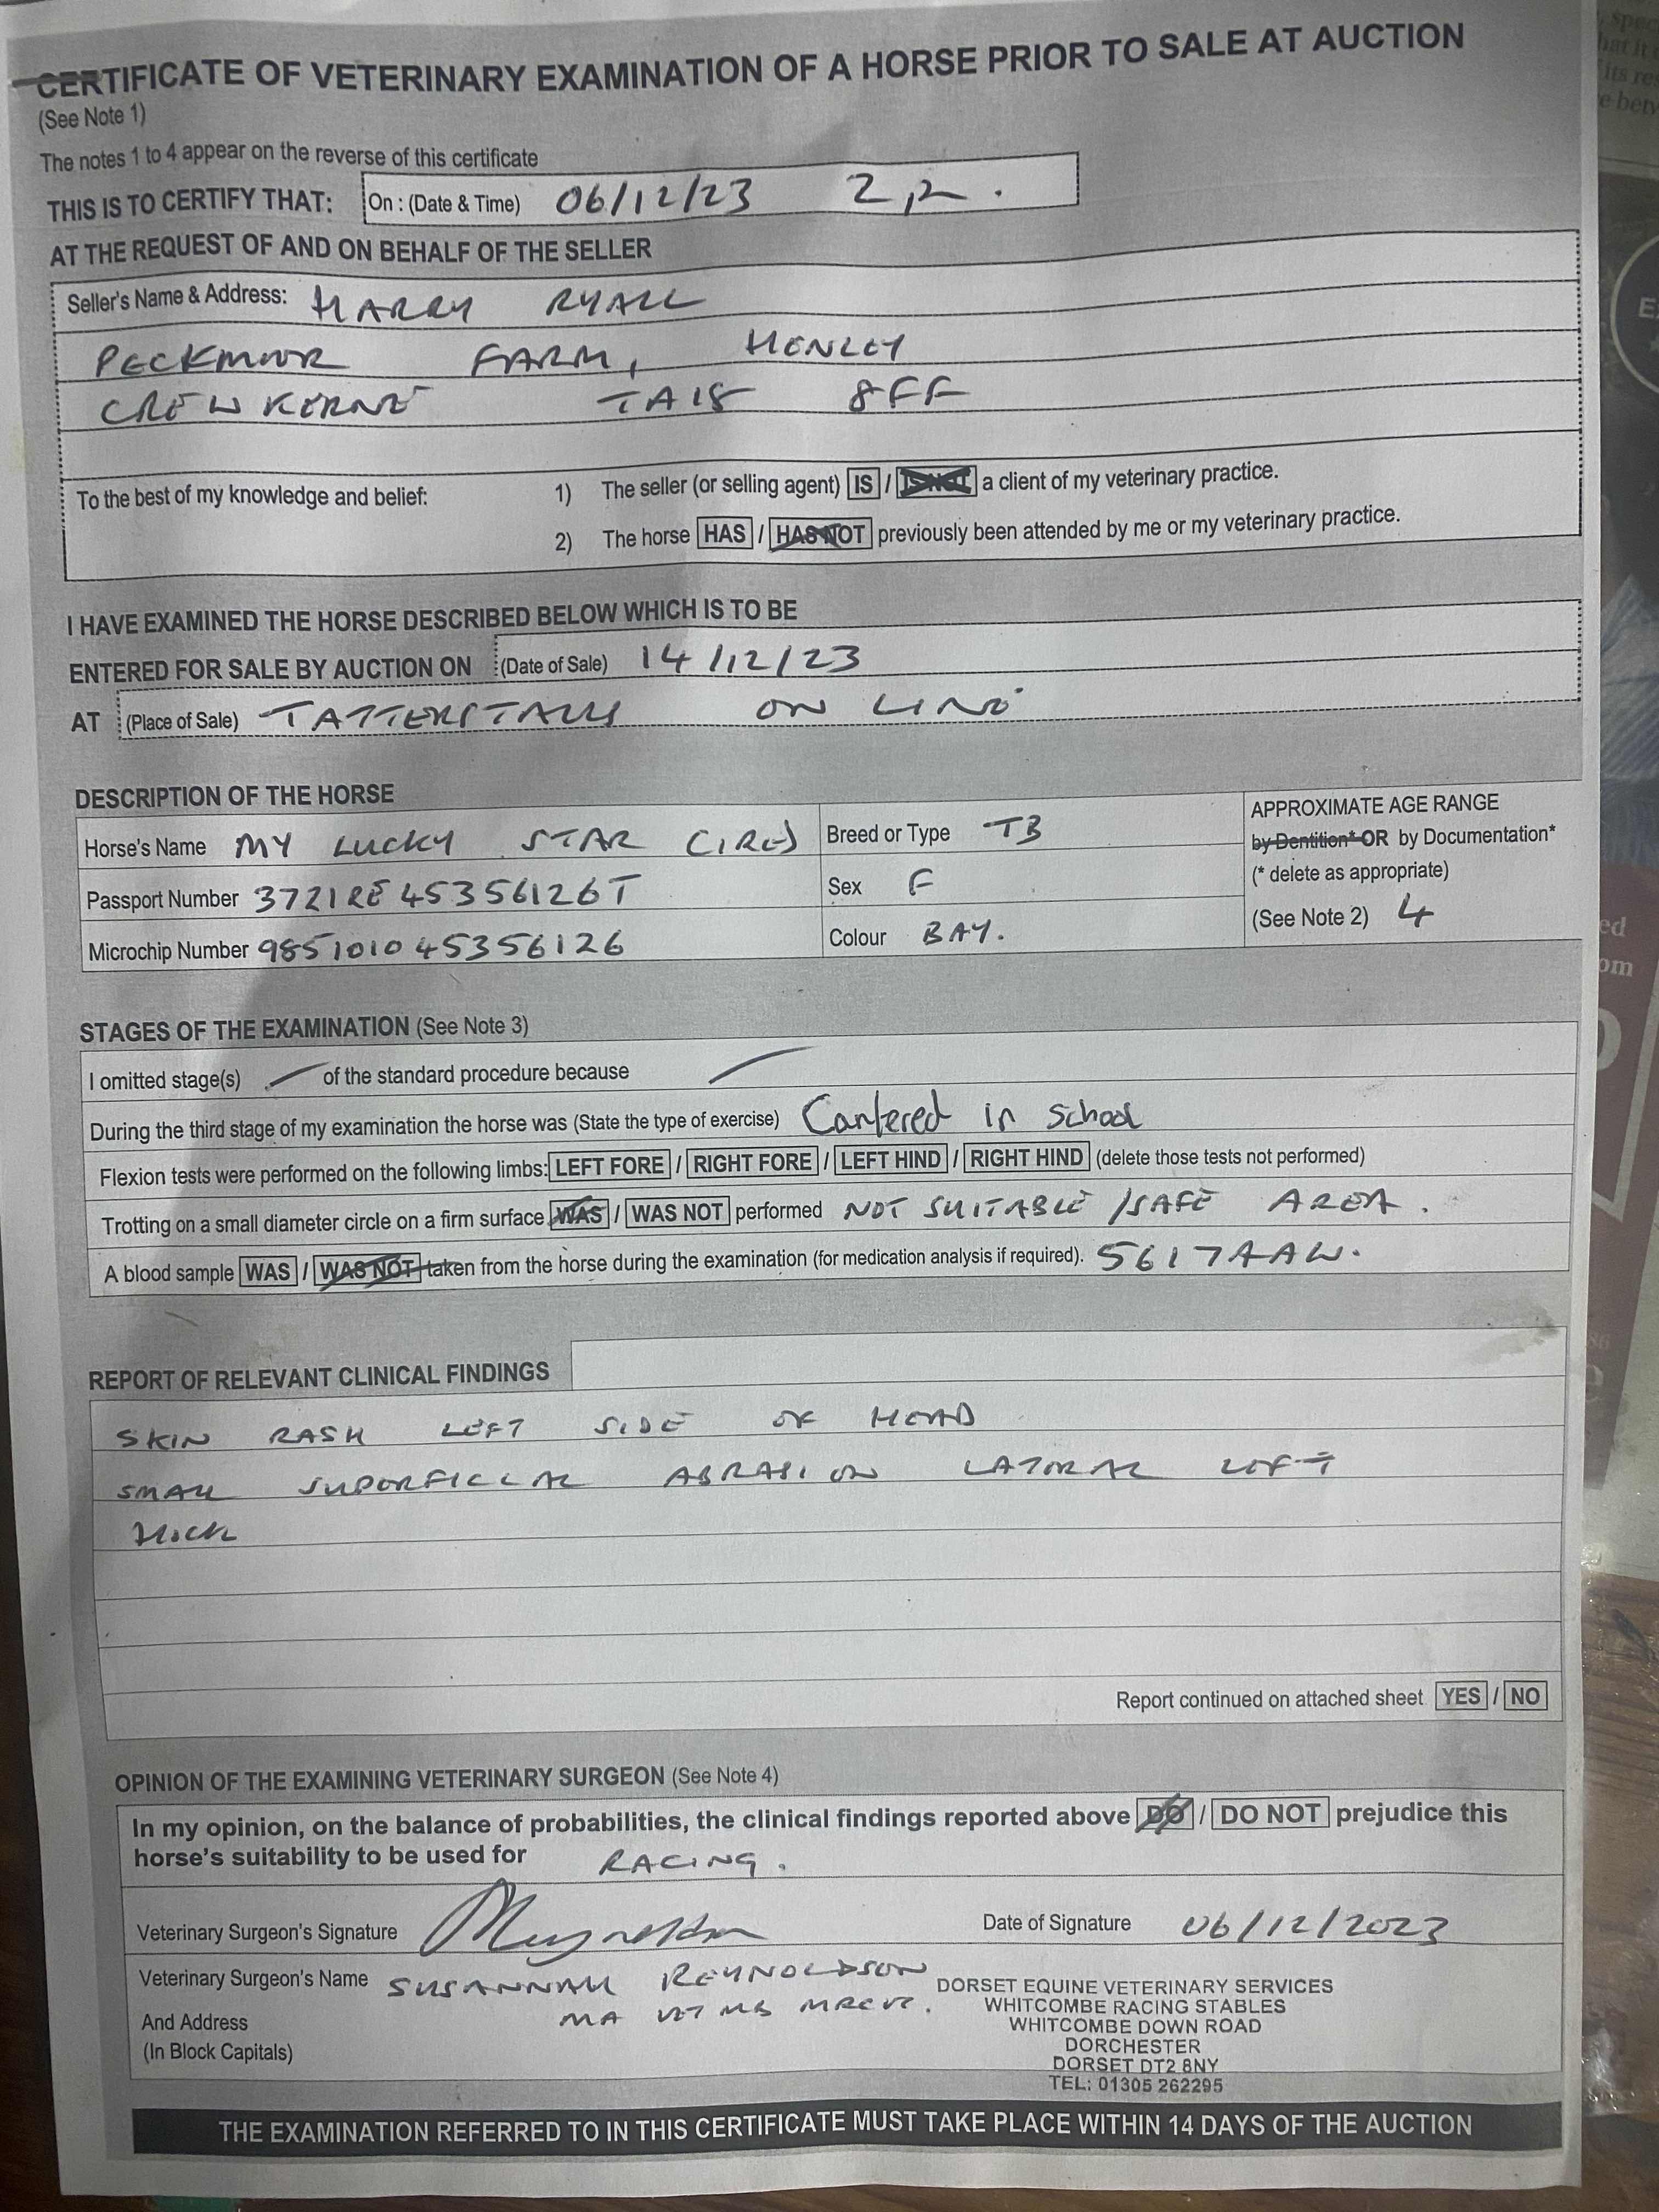 CERTIFICATE OF VETERINARY EXAMINATION OF A HORSE PRIOR TO SALE AT AUCTION
(See Note 1)
The notes 1 to 4 appear on the reverse of this certificate
THIS IS TO CERTIFY THAT: On : (Date & Time) 06/12/23 2pm.
AT THE REQUEST OF AND ON BEHALF OF THE SELLER
Seller's Name & Address: HARRY RYALL
PECKMOOR FARM, HENLEY
CREWKERNE TA18 8FF
To the best of my knowledge and belief: 1) The seller (or selling agent) IS / IS NOT a client of my veterinary practice.
2) The horse HAS / HAS NOT previously been attended by me or my veterinary practice.
I HAVE EXAMINED THE HORSE DESCRIBED BELOW WHICH IS TO BE
ENTERED FOR SALE BY AUCTION ON (Date of Sale) 14/12/23
AT (Place of Sale) TATTERSTALLS ON LINE
DESCRIPTION OF THE HORSE
Horse's Name MY LUCKY STAR (IRE)
Breed or Type TB
Passport Number 372IRE45356126T
Sex F
Microchip Number 985101045356126
Colour BAY.
APPROXIMATE AGE RANGE
by Dentition* OR by Documentation*
(* delete as appropriate)
(See Note 2) 4
STAGES OF THE EXAMINATION (See Note 3)
I omitted stage(s) of the standard procedure because
During the third stage of my examination the horse was (State the type of exercise) Cantered in School
Flexion tests were performed on the following limbs: LEFT FORE / RIGHT FORE / LEFT HIND / RIGHT HIND (delete those tests not performed)
Trotting on a small diameter circle on a firm surface WAS / WAS NOT performed NOT SUITABLE /SAFE AREA.
A blood sample WAS / WAS NOT taken from the horse during the examination (for medication analysis if required). 5617AAW.
REPORT OF RELEVANT CLINICAL FINDINGS
SKIN RASH LEFT SIDE OF HEAD
SMALL SUPERFICIAL ABRASION LATERAL LEFT
HOCK
Report continued on attached sheet YES / NO
OPINION OF THE EXAMINING VETERINARY SURGEON (See Note 4)
In my opinion, on the balance of probabilities, the clinical findings reported above DO / DO NOT prejudice this
horse's suitability to be used for RACING.
Veterinary Surgeon's Signature
Date of Signature 06/12/2023
Veterinary Surgeon's Name SUSANNAH REYNOLDSON
And Address MA VET MB MRCVS.
(In Block Capitals)
DORSET EQUINE VETERINARY SERVICES
WHITCOMBE RACING STABLES
WHITCOMBE DOWN ROAD
DORCHESTER
DORSET DT2 8NY
TEL: 01305 262295
THE EXAMINATION REFERRED TO IN THIS CERTIFICATE MUST TAKE PLACE WITHIN 14 DAYS OF THE AUCTION